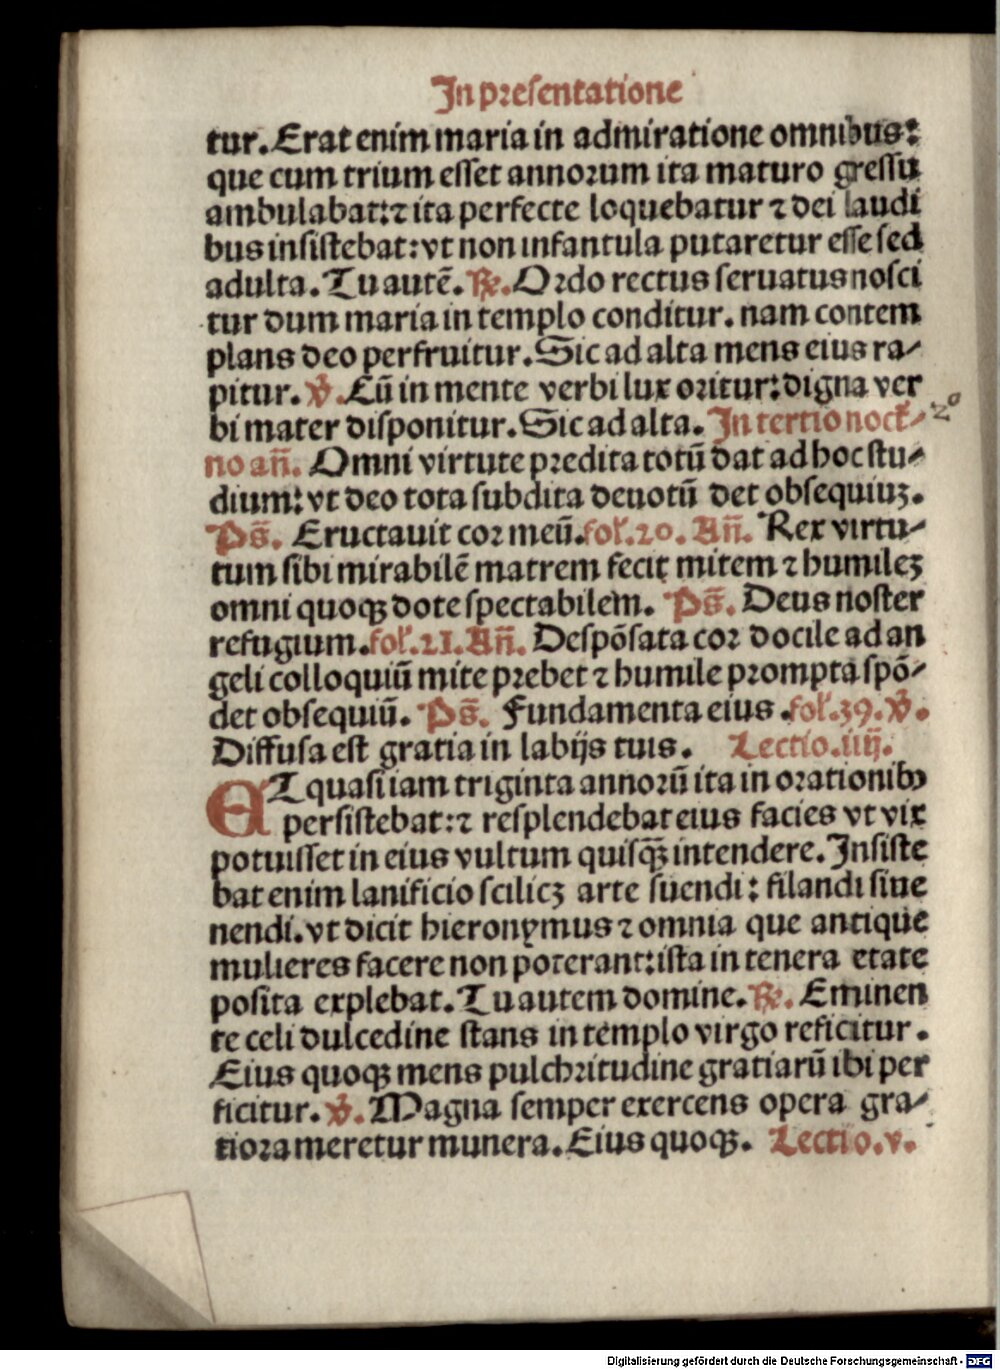 In presentatione
tur. Erat enim maria in admiratione omnibus:
que cum trium esset annorum ita maturo gressu
ambulabat: ⁊ ita perfecte loquebatur ⁊ dei laudi
bus insistebat: vt non infantula putaretur esse sed
adulta. Tu autē. ℟. Ordo rectus seruatus nosci
tur dum maria in templo conditur. nam contem
plans deo perfruitur. Sic ad alta mens eius ra-
pitur. ℣. Cū in mente verbi lux oritur: digna ver
bi mater disponitur. Sic ad alta. In tertio noct̄- 2º
no añ. Omni virtute predita totū dat ad hoc stu-
dium: vt deo tota subdita deuotū det obsequiuꝫ.
Ps̄. Eructauit cor meū. fol. 20. Añ. Rex virtu-
tum sibi mirabilē matrem fecit mitem ⁊ humileꝫ
omni quoqꝫ dote spectabilem. Ps̄. Deus noster
refugium. fol. 21. Añ. Despōsata cor docile ad an
geli colloquiū mite prebet ⁊ humile prompta spō-
det obsequiū. Ps̄. Fundamenta eius. fol. 39. ℣.
Diffusa est gratia in labijs tuis. Lectio. iiij.
ET quasi iam triginta annorū ita in orationibꝰ
persistebat: ⁊ resplendebat eius facies vt vix
potuisset in eius vultum quisqꝫ̄ intendere. Insiste
bat enim lanificio scilicꝫ arte suendi: filandi siue
nendi. vt dicit hieronymus ⁊ omnia que antique
mulieres facere non poterant: ista in tenera etate
posita explebat. Tu autem domine. ℟. Eminen
te celi dulcedine stans in templo virgo reficitur.
Eius quoqꝫ mens pulchritudine gratiarū ibi per
ficitur. ℣. Magna semper exercens opera gra-
tiora meretur munera. Eius quoqꝫ. Lectio. v.
Digitalisierung gefördert durch die Deutsche Forschungsgemeinschaft - DFG